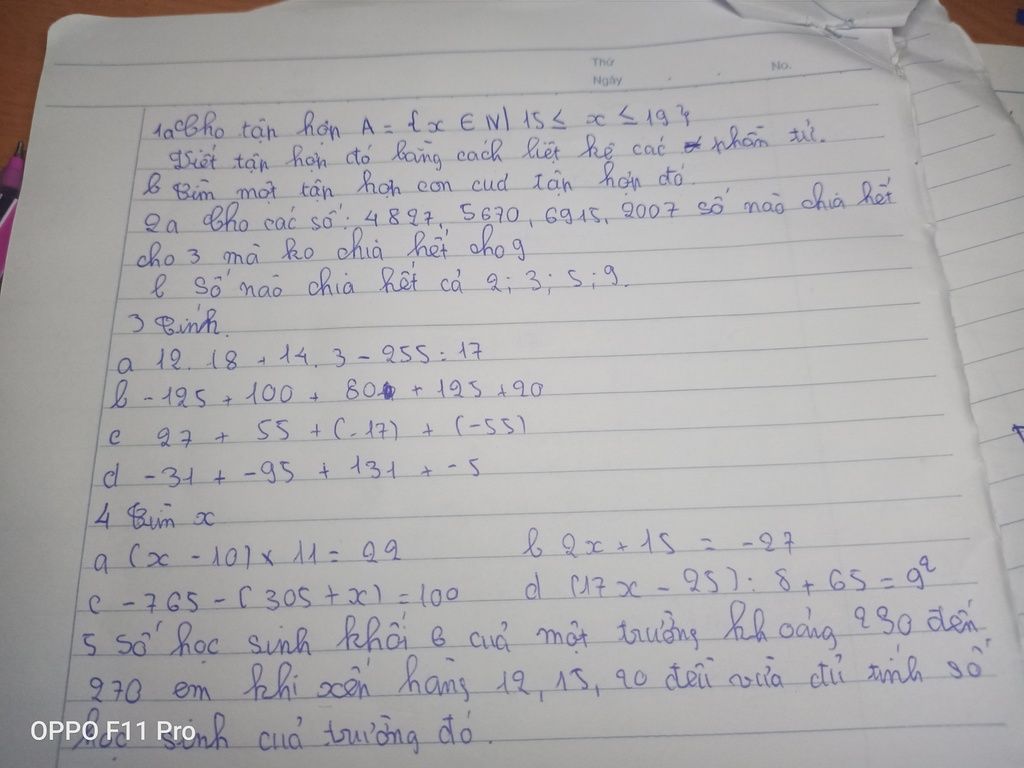 Thứ
Ngày
No.
1a Cho tận hơn A = {x ∈ N | 15 ≤ x ≤ 19}
Viết tận hơn đó bằng cách liệt kê các phần tử.
b Tìm một tận hơn con cuả tận hơn đó.
2a Cho các số: 4827, 5670, 6915, 2007 số nào chia hết
cho 3 mà ko chia hết cho 9
b Số nào chia hết cả 2; 3; 5; 9.
3 Tính.
a 12. 18 + 14. 3 - 255 : 17
b -125 + 100 + 80 + 125 + 20
c 27 + 55 + (-17) + (-55)
d -31 + -95 + 131 + -5
4 Tìm x
a (x - 10) x 11 = 22 b 2x + 15 = -27
c -765 - (305 + x) = 100 d (17x - 25) : 8 + 65 = 9²
5 Số học sinh khối 6 cuả một trường khoảng 230 đến
270 em khi xến hàng 12, 15, 20 đều vừa đủ tính số
học sinh cuả trường đó.
OPPO F11 Pro